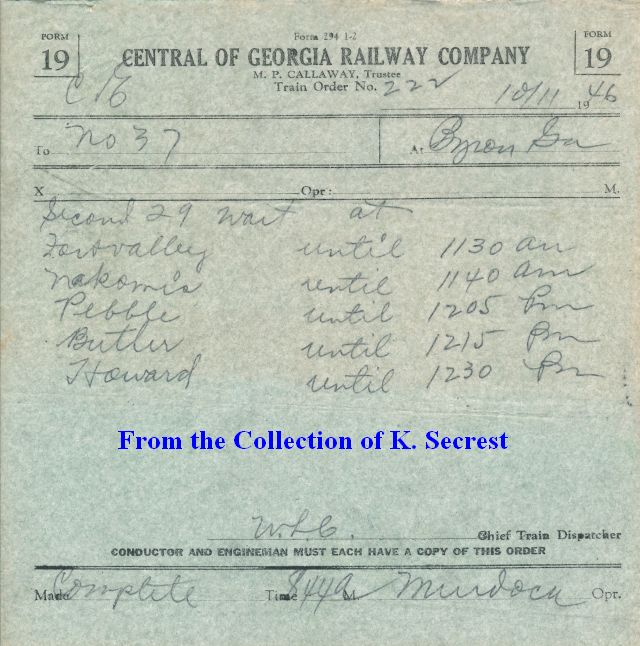 FORM 19
Form 294 1-2
FORM 19
CENTRAL OF GEORGIA RAILWAY COMPANY
M. P. CALLAWAY, Trustee
Train Order No. 222
10/11 1946
To No 37 At Byron Ga
X Opr: M.
Second 29 wait at
Fortvalley until 1130 am
Nakomis until 1140 am
Pebble until 1205 Pm
Butler until 1215 Pm
Howard until 1230 Pm
From the Collection of K. Secrest
W.L.C. Chief Train Dispatcher
CONDUCTOR AND ENGINEMAN MUST EACH HAVE A COPY OF THIS ORDER
Made Complete Time 844A M. Murdock Opr.